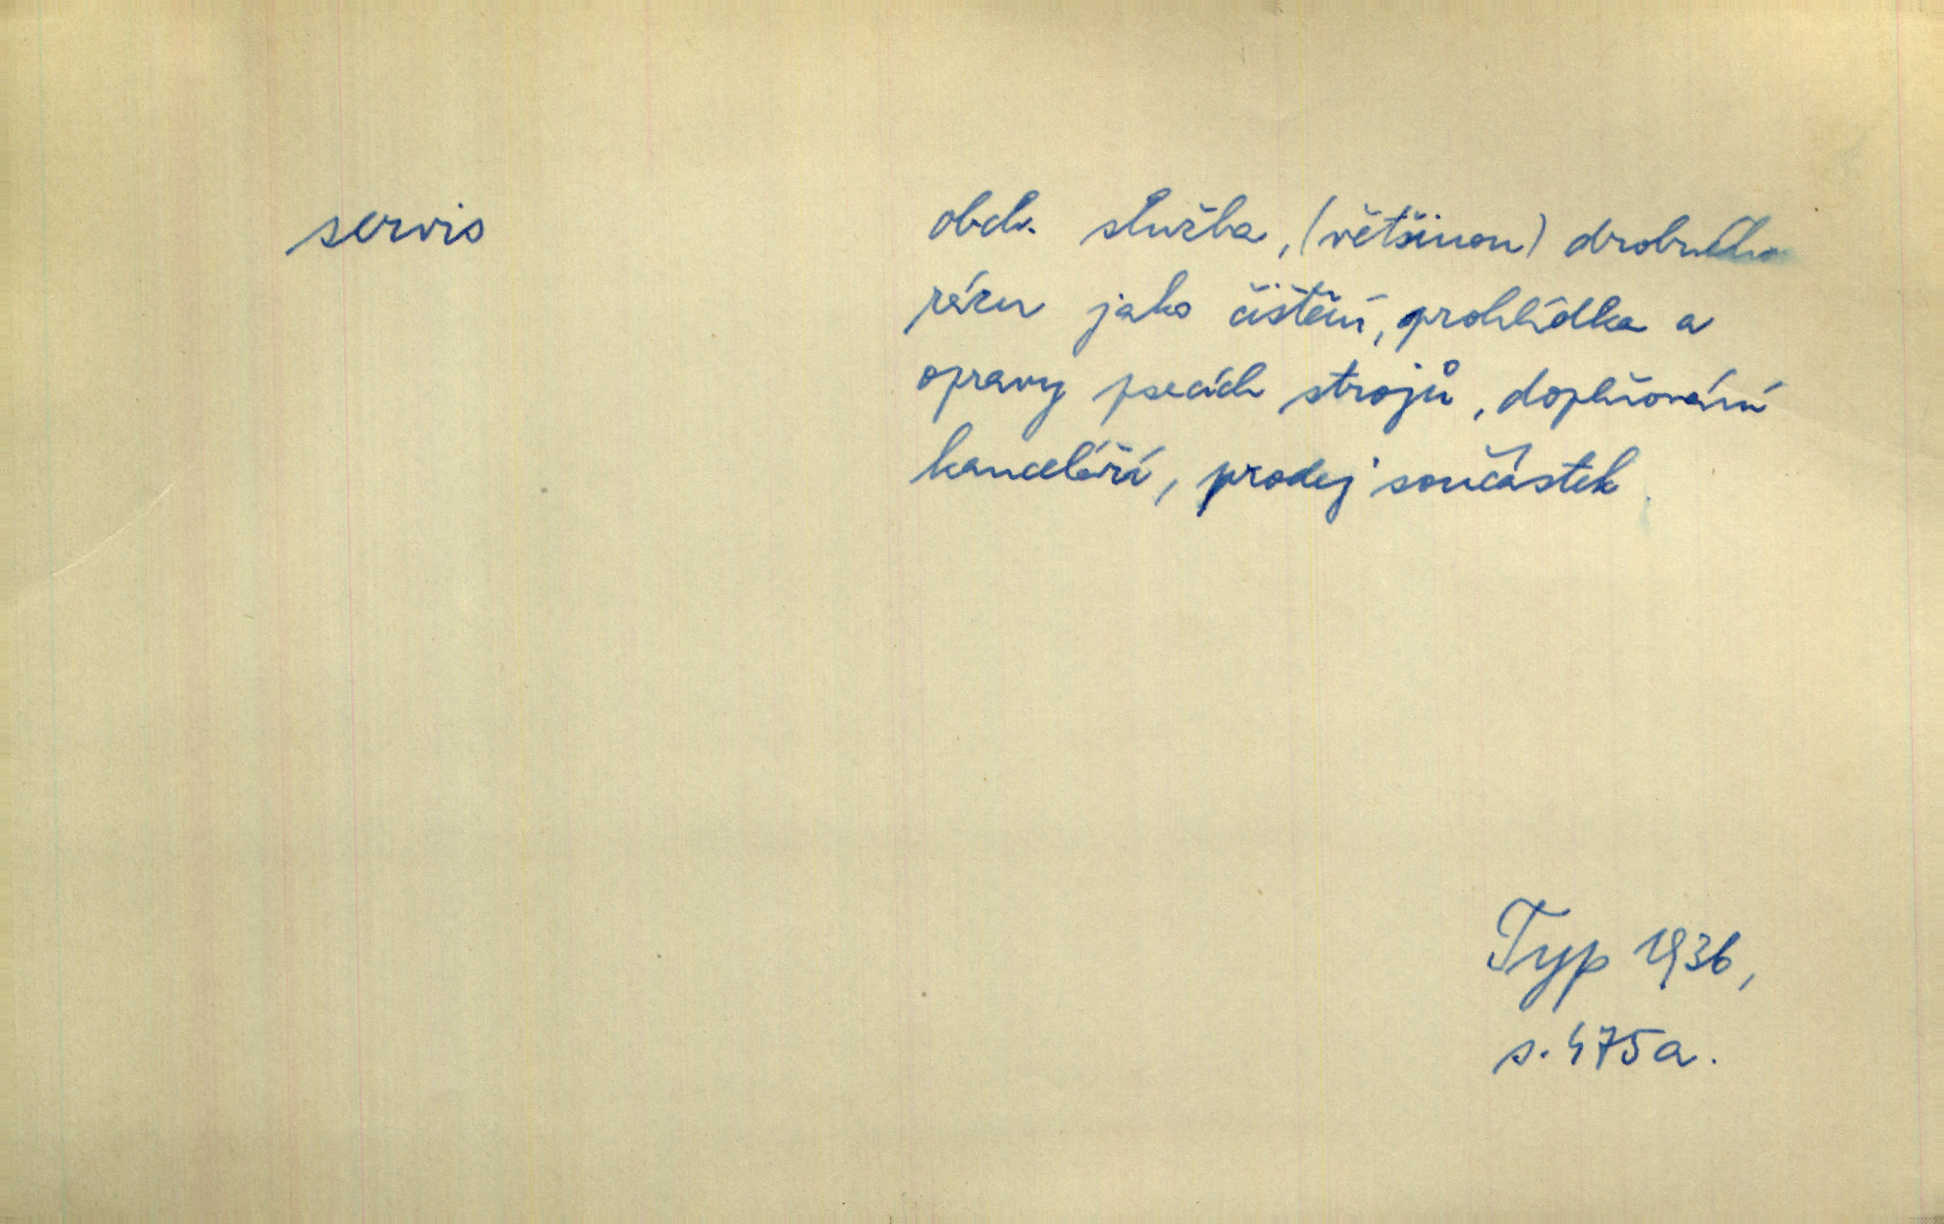 servis
obch. služba, (většinou) drobného
rázu jako čištění, prohlídka a
opravy psacích strojů, doplňování
kanceláří, prodej součástek.
Typ 1936,
s. 475a.